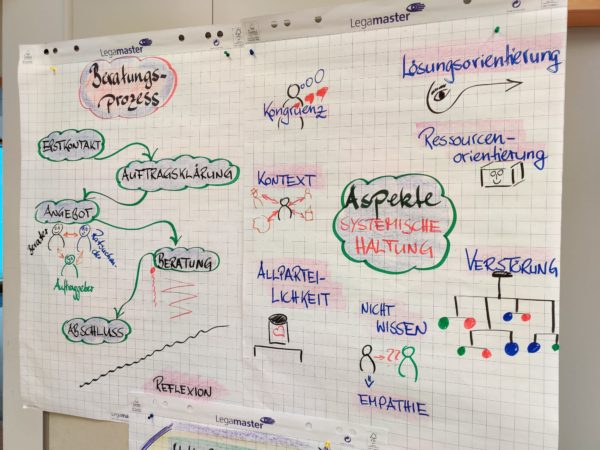 Legamaster
Beratungs-
prozess
ERSTKONTAKT
AUFTRAGSKLÄRUNG
ANGEBOT
Berater
Auftraggeber
BERATUNG
ABSCHLUSS
REFLEXION
Legamaster
Legamaster
Kongruenz
Lösungsorientierung
Ressourcen-
orientierung
KONTEXT
Aspekte
SYSTEMISCHE
HALTUNG
ALLPARTEI-
LICHKEIT
NICHT
WISSEN
??
EMPATHIE
VERSTÖRUNG
Legamaster